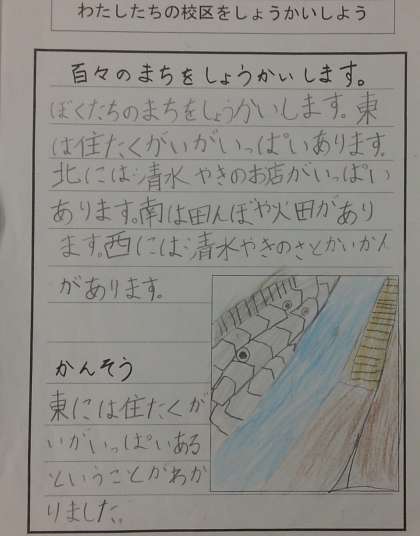 わたしたちの校区をしょうかいしよう
百々のまちをしょうかいします。
ぼくたちのまちをしょうかいします。東
は住たくがいがいっぱいあります。
北には清水やきのお店がいっぱい
あります。南は田んぼや火田があり
ます。西には清水やきのさとかいかん
があります。
かんそう
東には住たくが
いがいっぱいある
ということがわか
りました。